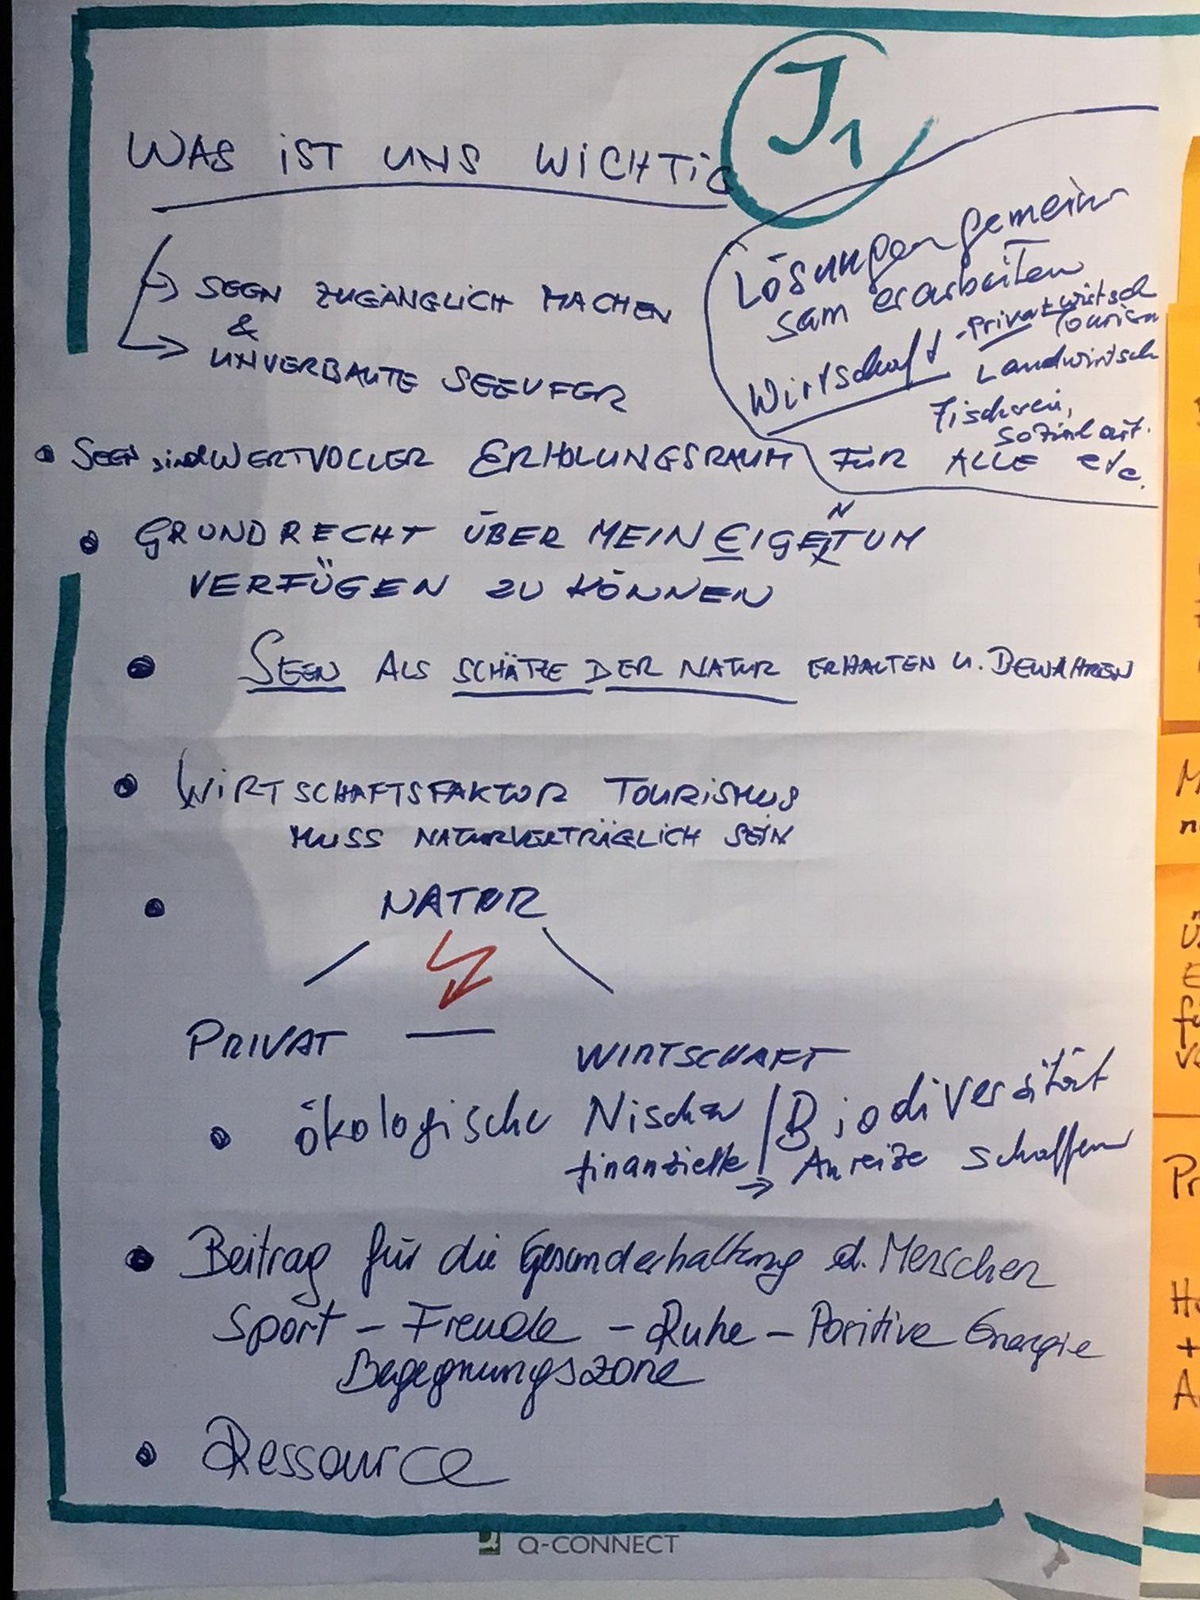 J1
WAS IST UNS WICHTIG
→ SEEN ZUGÄNGLICH MACHEN
&
→ UNVERBAUTE SEEUFER
Lösungen gemein
sam erarbeiten
Wirtschaft - Privatwirtsch
Tourism
Landwirtsch
Fischerei,
etc.
• SEEN sind WERTVOLLER ERHOLUNGSRAUM FÜR ALLE
• GRUNDRECHT ÜBER MEIN EIGENTUM
VERFÜGEN ZU KÖNNEN
• SEEN ALS SCHÄTZE DER NATUR ERHALTEN U. BEWAHREN
• WIRTSCHAFTSFAKTOR TOURISMUS
MUSS NATURVERTRÄGLICH SEIN
• NATUR
PRIVAT — WIRTSCHAFT
• ökologische Nischen / Biodiversität
finanzielle → Anreize schaffen
• Beitrag für die Gesunderhaltung d. Menschen
Sport – Freude – Ruhe – Positive Energie
Begegnungszone
• Ressource
Q-CONNECT
M
n
Ü
E
fü
Pr
+
A